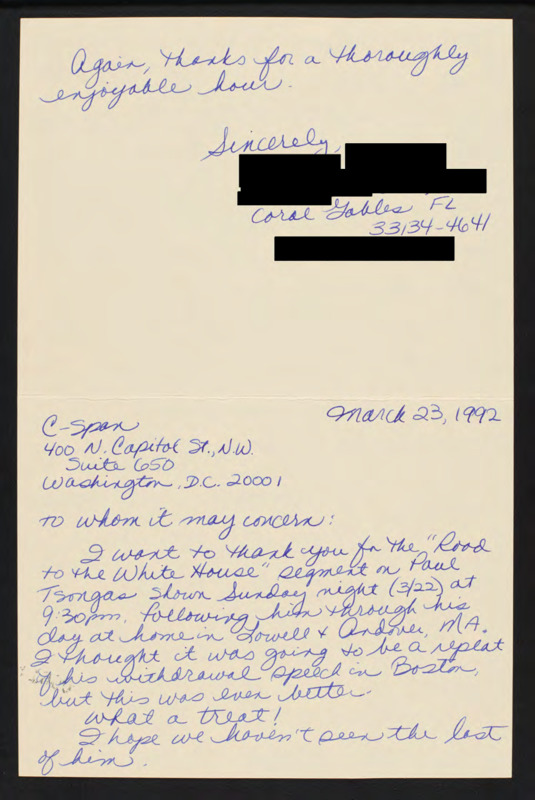 Again, thanks for a thoroughly
enjoyable hour.
Sincerely,
Coral Gables FL
33134-4641
March 23, 1992
C-Span
400 N. Capitol St., N.W.
Suite 650
Washington, D.C. 20001
To whom it may concern:
I want to thank you for the "Road
to the White House" segment on Paul
Tsongas shown Sunday night (3/22) at
9:30pm. following him through his
day at home in Lowell & Andover, MA.
I thought it was going to be a repeat
of his withdrawal speech in Boston,
but this was even better.
What a treat!
I hope we haven't seen the last
of him.